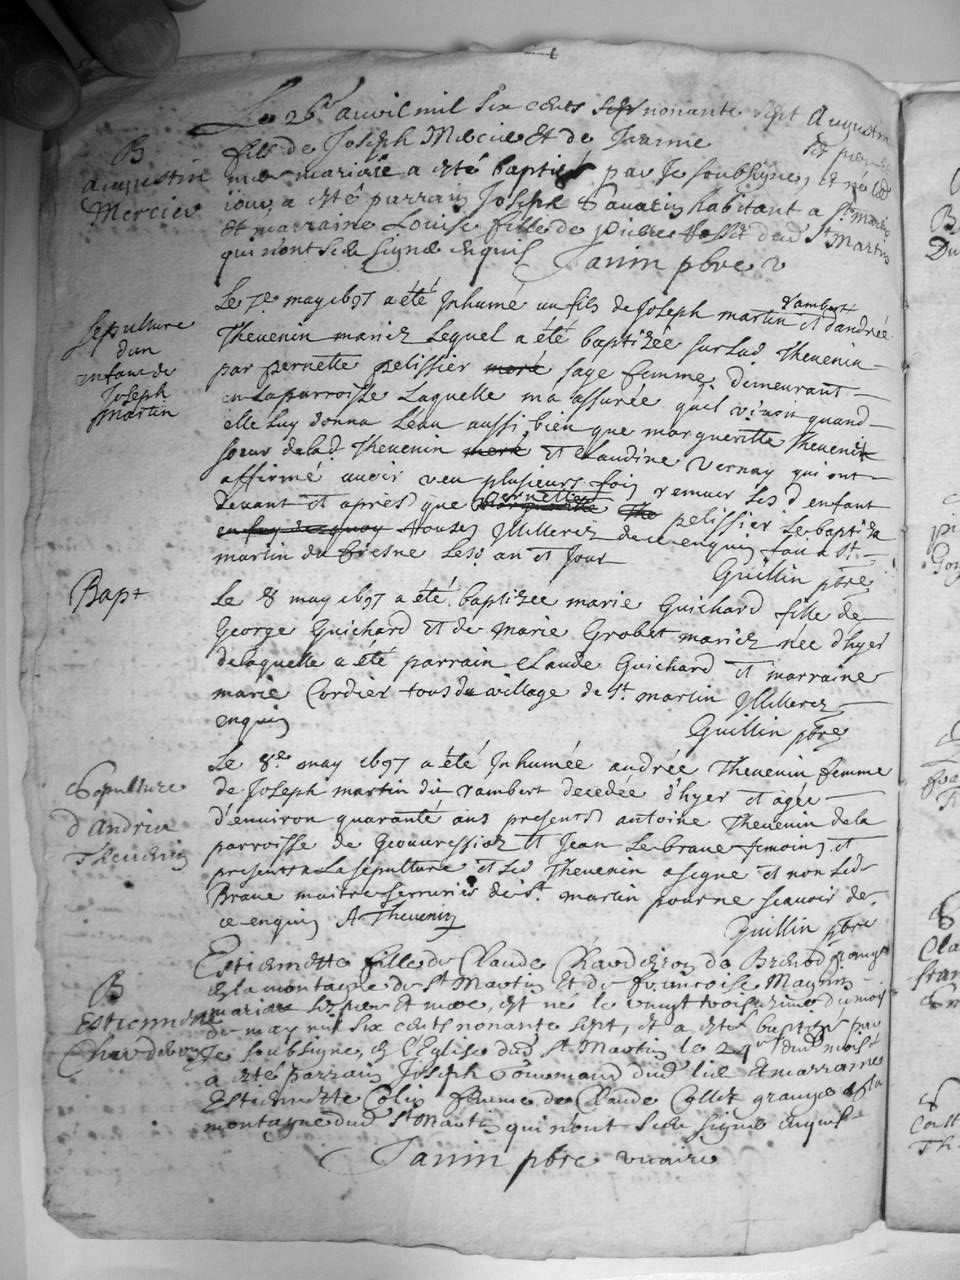 Le 26e auvil mil six cents nonante sept Augustin
B
Augustin
Mercier
fils de Joseph Mercier et de Jeanne
mariés a esté baptisé par Je soubsigné, et né led
iour, a esté parrain Joseph habitant a St Martin
et marraine Louise fille de pierre dud St Martin
qui n'ont sceu signé enquis
Janin pbre v
Sepulture
d'un
enfant de
Joseph
martin
Le 7e may 1697 a été Inhumé un fils de Joseph martin et d'andrée
rambert
Thevenin mariez Lequel a été baptizée sur lad. Thevenin
par pernette pelissier meré sage femme, demeurant
en La parroisse Laquelle m'a assurée quil vivoit quand
elle Luy donna L'eau aussi bien que margueritte Thevenin
soeur de lad. Thevenin meré et Claudine vernay qui ont
affirmé avoir veu plusieurs fois remuer Led. enfant
devant et après que pernette pelissier Le baptiza
Illiterez de ce enquis fait a St
martin du fresne Lesd. an et Jour
Guillin pbre
Bapt
Le 8 may 1697 a été baptizee marie Guichard fille de
George Guichard et de marie Grobet mariez née d'hyer
de laquelle a été parrain Claude Guichard et marraine
marie Cordier tous du village de St. martin Illiterez
enquis
Guillin pbre
Sepulture
d'Andrée
Thevenin
Le 8.e may 1697 a été Inhumée andrée Thevenin femme
de Joseph martin dit rambert decedée d'hyer et agée
d'environ quarante ans presents antoine Thevenin de la
parroisse de Geovressiat et Jean Le brave temoins et
presents a La sepulture et led Thevenin a signé et non Led
Brave maitre serrurier de St. martin pour ne scavoir de
ce enquis A Thevenin
Guillin pbre
B
Estiennette
Estiennette fille de Claude de Brenod
en la montagne de St Martin et de francoise
mariés ses pere et mere, est né le vingt troisieme du mois
de may mil six cents nonante sept, et a esté baptisé par
Je soubsigné, en l'Eglise dud St Martin le 24e dud mois
a esté parrain Joseph dud lieu et marraine
Estiennette Colin femme de Claude Collet grangé de la
montagne dud St Martin qui n'ont sceu signé enquis
Janin pbre vicaire